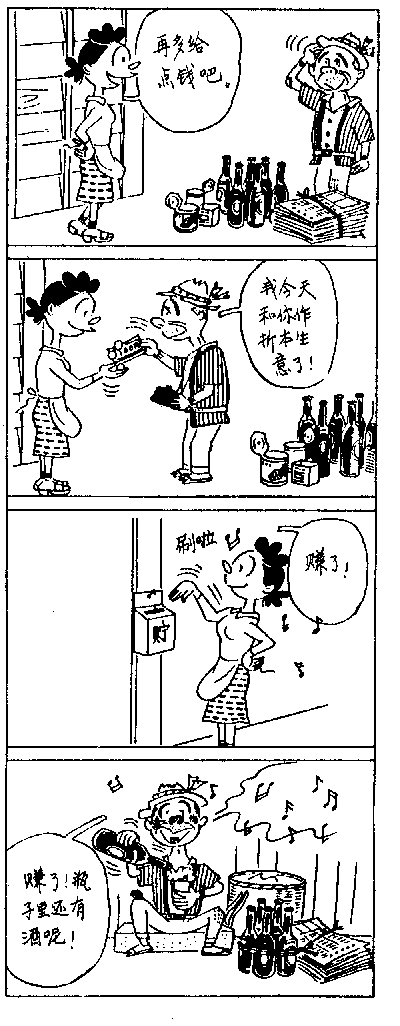 再多给
点钱吧。
我今天
和你作
折本生
意了!
刷啦
赚了!
贮
赚了!瓶
子里还有
酒呢!